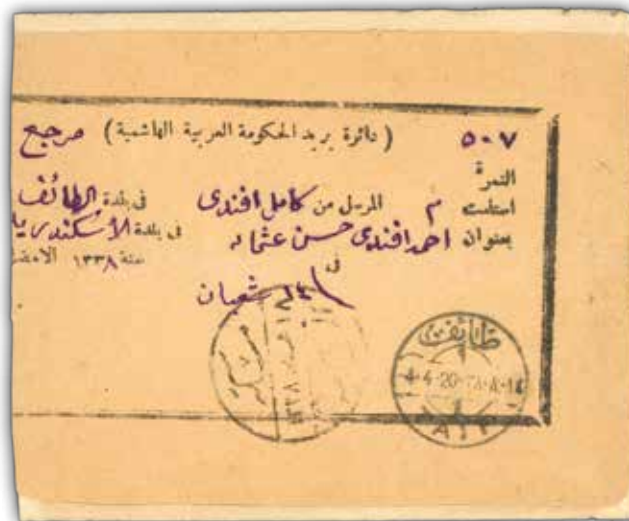 ٥٠٧ (دائرة بريد الحكومة العربية الهاشمية) مرجع
النمرة
استلمت م المرسل من كامل افندى فى بلدة الطائف
بعنوان احمد افندى حسن عثمان فى بلدة الاسكندرية
فى سنة ١٣٣٨ الامضا
١٤ شعبان
طائف
4-4-20